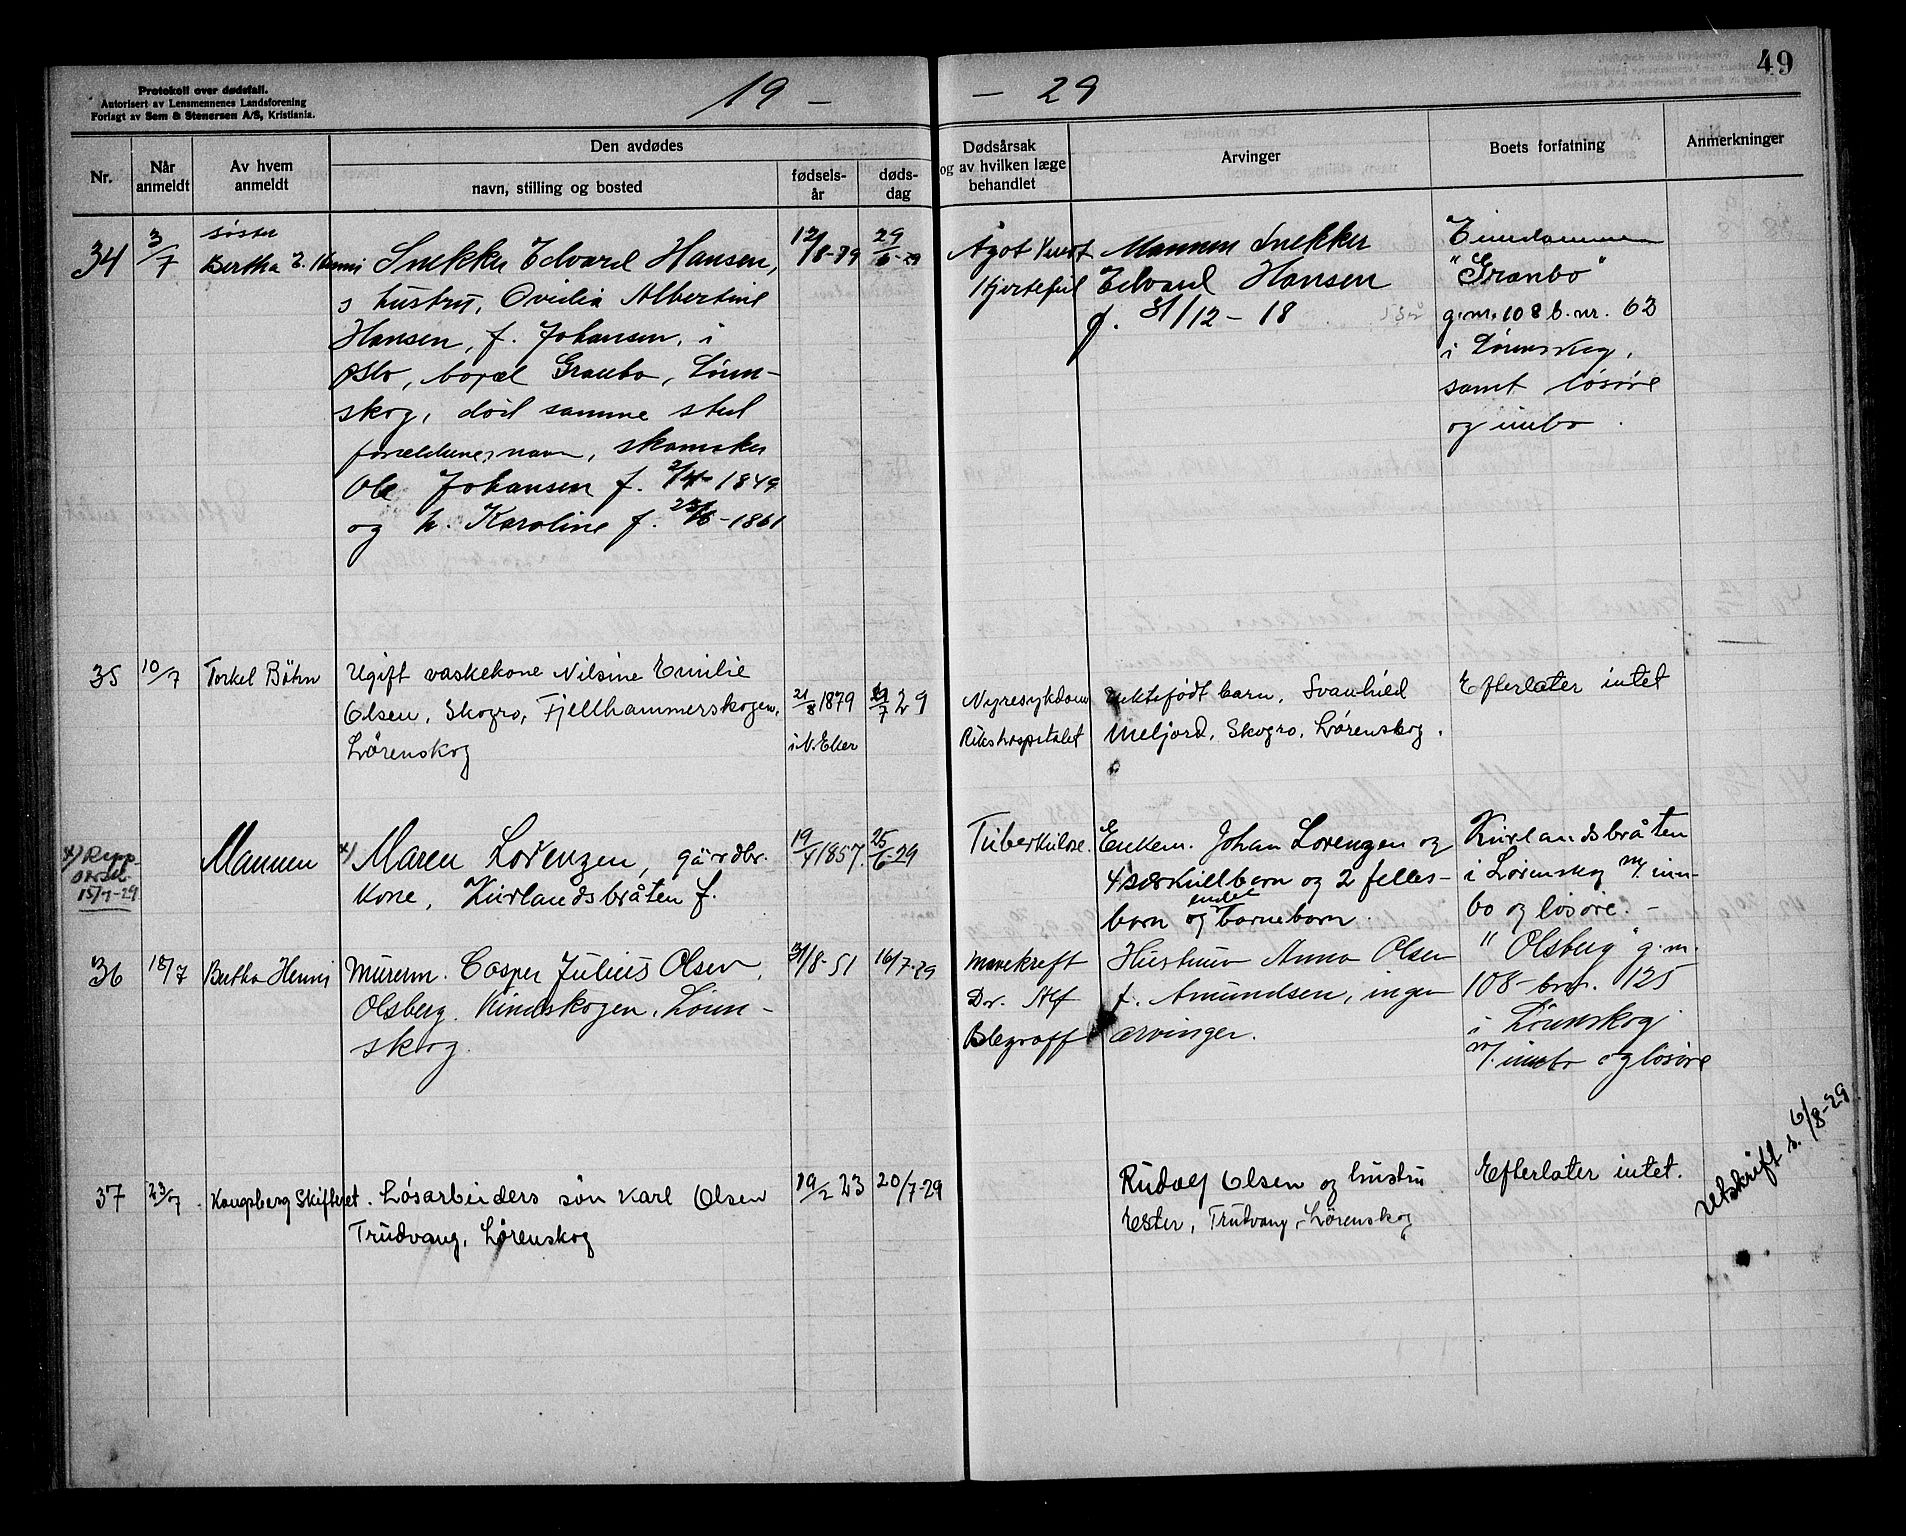 Protokoll over dødsfall.
Autorisert av Lensmennenes Landsforening
Forlagt av Sem & Stenersen A/S, Kristiania.
19 - - 29
49
Nr.
Når anmeldt
Av hvem anmeldt
Den avdødes
navn, stilling og bosted
fødsels-år
døds-dag
Dødsårsak og av hvilken læge behandlet
Arvinger
Boets forfatning
Anmerkninger
34
3/7
søster
Bertha E.
Snekker Edvard Hansen,
s hustru, Ovilia Albertine
Hansen, f. Johansen, i
Oslo, bopæl Granbo, Løren-
skog, død samme sted
forældrenes navn, skomaker
Ole Johansen f. 1849
og h. Karoline f. 1861
12/8-89
29/6-29
Hjertefeil
Mannen Snekker
Edvard Hansen
f. 31/12-18
Eiendommen
"Granbo"
g.nr. 108 b.nr. 62
i Lørenskog,
samt løsøre
og innbo.
35
10/7
Torkel Böhn
Ugift vaskekone Nilsine Emilie
Olsen, Skogro, Fjellhammerskogen,
Lørenskog
21/8 1879
i N. Eker
/7 29
Nyresykdom
Rikshospitalet
Uektefødt barn, Svanhild
Meljord, Skogro, Lørenskog.
Efterlater intet
x)
15/7-29
Mannen
x) Maren Lorenzen, gårdbr.
kone, Kurlandsbråten f.
19/4 1857.
25/6-29
Tuberkulose.
Enkem. Johan Lorenzen og
4 særkullbarn og 2 felles-
barn og endel barnebarn.
Kurlandsbråten
i Lørenskog m/ inn-
bo og løsøre. -
36
18/7
Bertha Henni
Murerm. Casper Julius Olsen,
Olsberg. Kineskogen, Løren-
skog.
31/8-51
16/7-29
Mavekreft
Dr. Alf
Blegraff
Hustruen Anna Olsen
f. Amundsen, ingen
arvinger.
"Olsberg" g.nr.
108 bnr. 125
i Lørenskog
m/. innbo og løsøre
37
23/7
Kongsberg Skifteret.
Løsarbeiders søn Karl Olsen
Trudvang, Lørenskog
19/2 23
20/7-29
Rudolf Olsen og hustru
Ester, Trudvang, Lørenskog
Efterlater intet.
Utskrift s. 6/8-29